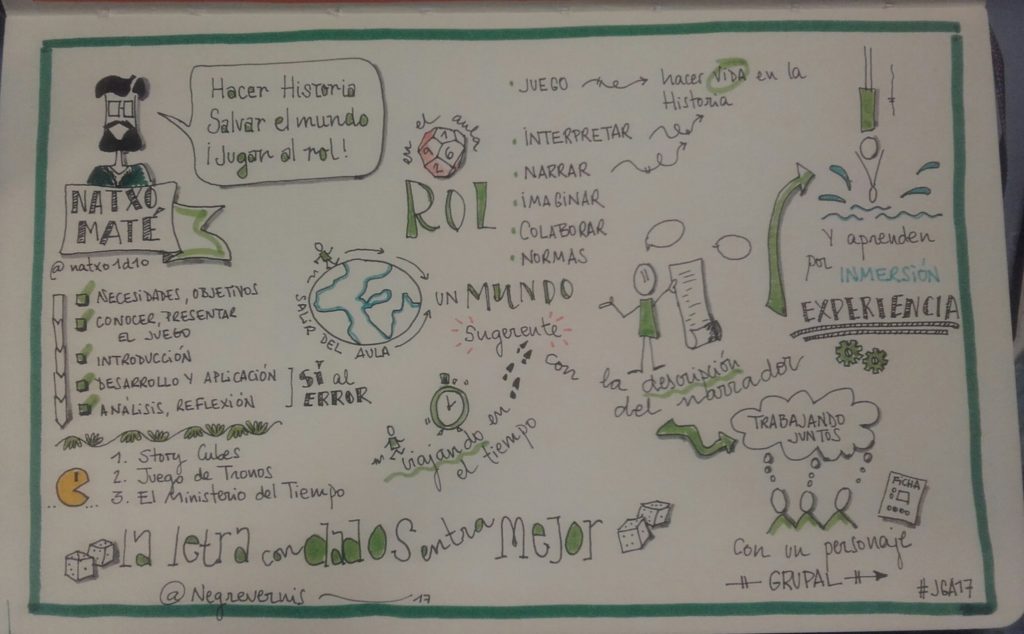 Hacer Historia
Salvar el mundo
¡Jugar al rol!
NATXO
MATÉ
@natxo1d10
NECESIDADES, OBJETIVOS
CONOCER, PRESENTAR
EL JUEGO
INTRODUCCIÓN
DESARROLLO Y APLICACIÓN
ANÁLISIS, REFLEXIÓN
SÍ al
ERROR
1. Story Cubes
2. Juego de Tronos
3. El Ministerio del Tiempo
en el aula
ROL
· JUEGO hacer VIDA en la
Historia
· INTERPRETAR
· NARRAR
· IMAGINAR
· COLABORAR
· NORMAS
SALIR DEL AULA
UN MUNDO
Sugerente
con
la descripción
del narrador
viajando en
el tiempo
Y aprenden
por INMERSIÓN
EXPERIENCIA
TRABAJANDO
JUNTOS
FICHA
con un personaje
GRUPAL
la letra con dados entra mejor
@Negrevernis 17
#JGA17